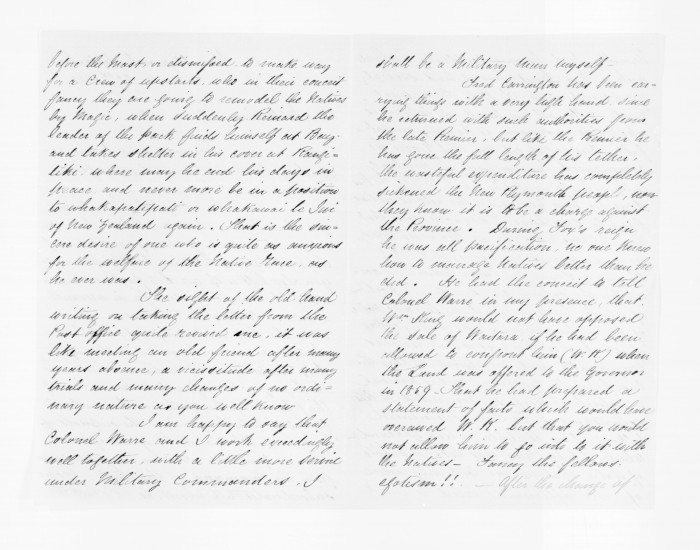 before the Mast, or dismissed to make way
for a Crew of upstarts who in their conceit
fancy they are going to remodel the Natives
by Magic, when suddenly Reinard the
leader of the pack finds himself at Bay
and takes shelter in his cover at Rangi-
tiki where may he end his days in
peace and never more be in a position
to whakapatipati or whakawai te Iwi
of New Zealand again. That is the sin-
cere desire of one who is quite as anxious
for the welfare of the Native Race as
he ever was.
The sight of the old hand
writing on taking the letter from the
Post office quite revived me, it was
like meeting an old friend after many
years absence, a vicissitude after many
trials and many changes of no ordi-
nary nature as you well know
I am happy to say that
Colonel Warre and I work exceedingly
well together, with a little more service
under Military Commanders. I
shall be a Military Man myself—
Fred Carrington has been car-
rying things with a very high hand since
he returned with such authorities from
the late Premier, but like the Premier he
has gone the full length of his tether.
The wasteful expenditure has completely
sickened the New Plymouth people, now
they know it is to be a charge against
the Province. During Fox's reign
he was all pacification, no one knew
how to manage Natives better than he
did. He had the conceit to tell
Colonel Warre in my presence, that
Wm King would not have opposed
the sale of Waitara if he had been
allowed to confront him (W.K) when
the Land was offered to the Governor
in 1859. That he had prepared a
statement of facts which would have
overawed W.K. but that you would
not allow him to go into it with
the Natives— Fancy the fellows
egotism!! — After the change of